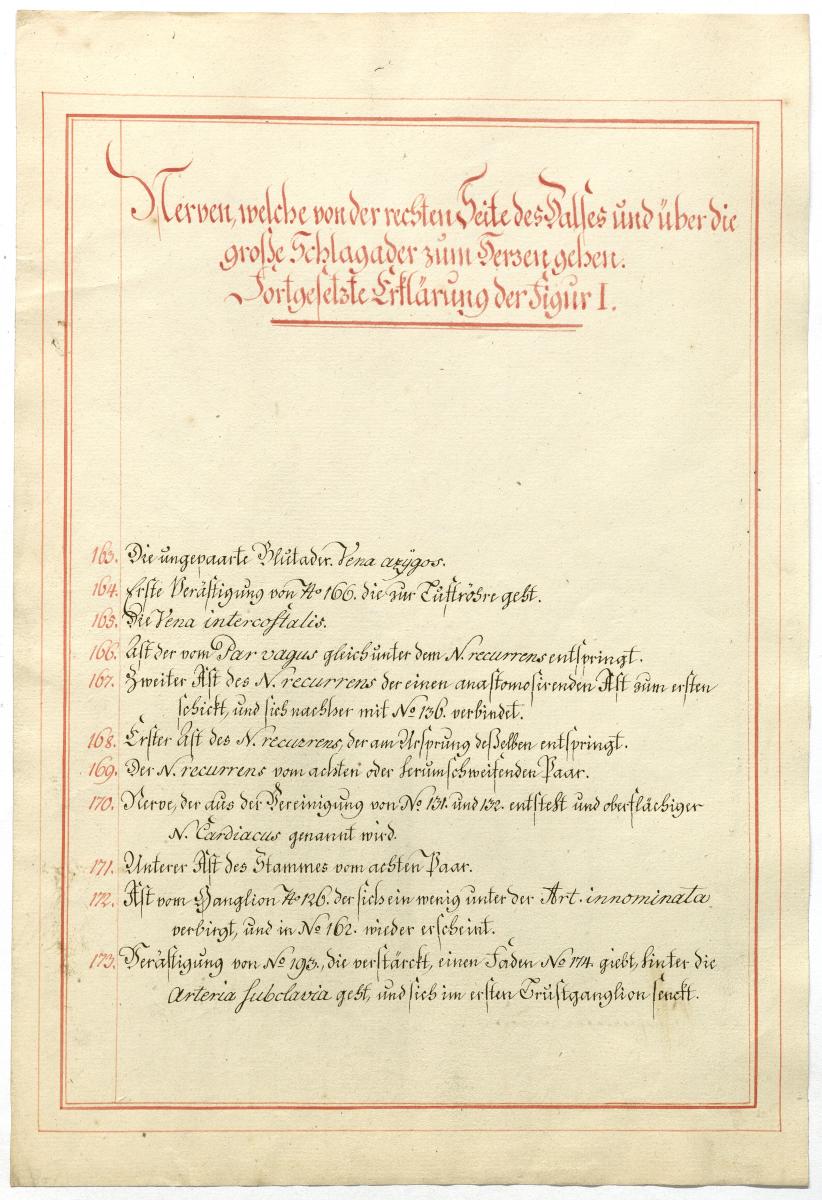 Nerven, welche von der rechten Seite des Halses und über die
große Schlagader zum Herzen gehen.
Fortgesetzte Erklärung der Figur I.
163. Die ungepaarte Blutader. Vena azÿgos.
164. Erste Verästigung von No 166. die zur Luftröhre geht.
165. Die Vena intercostalis.
166. Ast der vom Par vagus gleich unter dem N. recurrens entspringt.
167. Zweiter Ast des N. recurrens der einen anastomosirenden Ast zum ersten
schickt, und sich nachher mit No 136. verbindet.
168. Erster Ast des N. recurrens, der am Ursprung deßelben entspringt.
169. Der N. recurrens vom achten oder herumschweifenden Paar.
170. Nerve, der aus der Vereinigung von No 131. und 132. entsteht und oberflächiger
N. Cardiacus genannt wird.
171. Unterer Ast des Stammes vom achten Paar.
172. Ast vom Ganglion No 126. der sich ein wenig unter der Art. innominata
verbirgt, und in No 162. wieder erscheint.
173. Verästigung von No 193., die verstärckt, einen Faden No 174. giebt, hinter die
Arteria subclavia geht, und sich im ersten Brustganglion senckt.